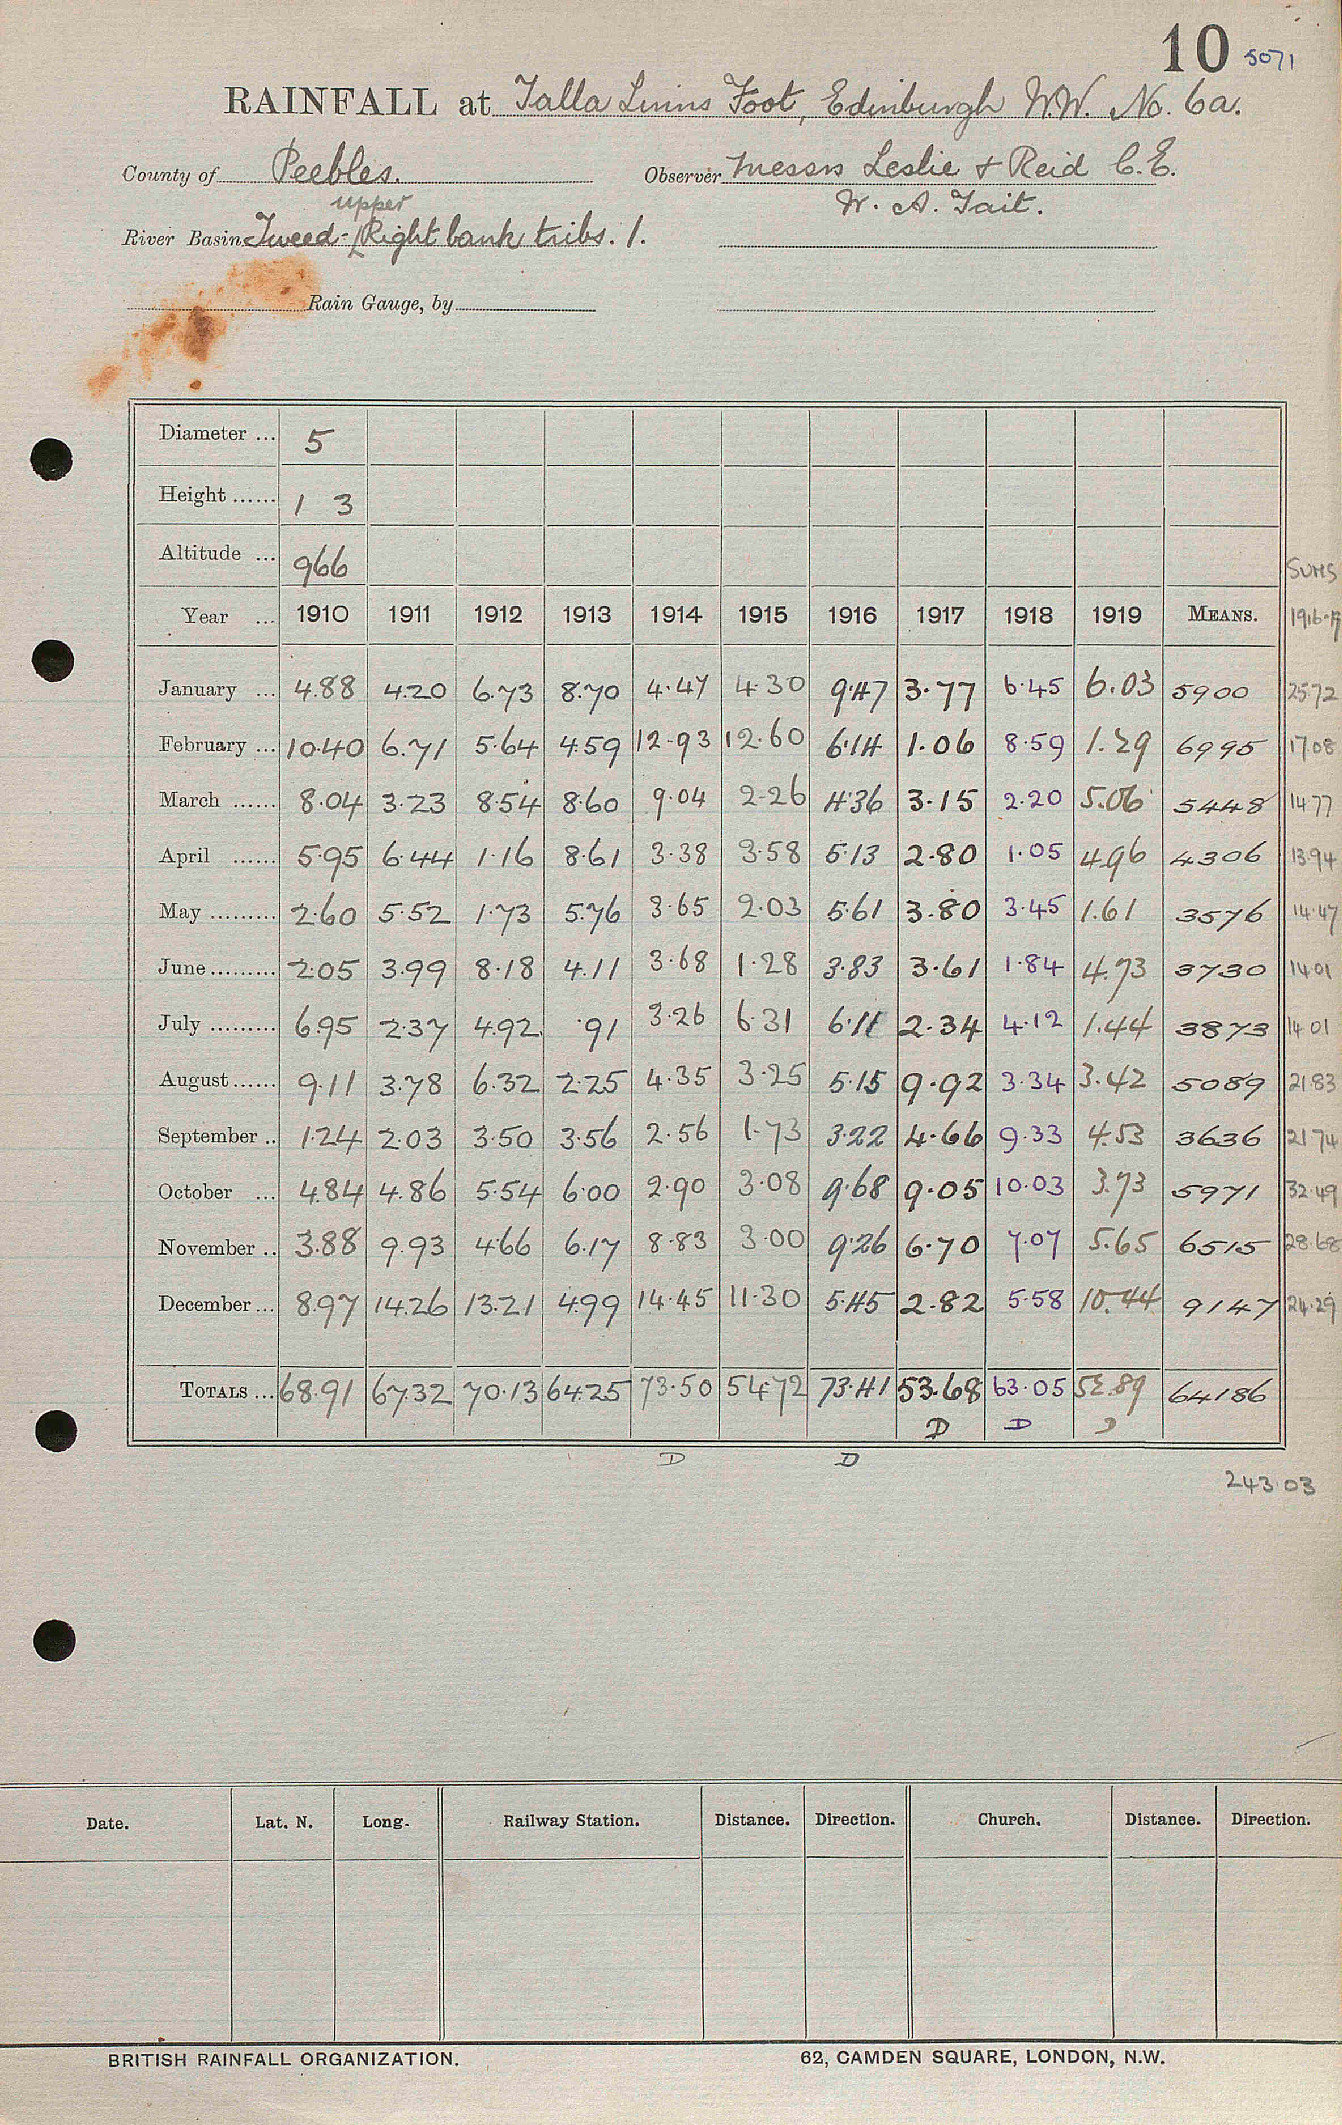 10 5071
RAINFALL at Talla Linns Foot, Edinburgh W.W. No. 6a.
County of Peebles. Observer Messrs Leslie & Reid C.E.
W. A. Tait.
upper
River Basin Tweed - Right bank tribs. 1.
Rain Gauge, by
Diameter ... 5
Height ...... 1 3
Altitude ... 966
SUMS
Year ... 1910 1911 1912 1913 1914 1915 1916 1917 1918 1919 MEANS. 1916-19
January ... 4.88 4.20 6.73 8.70 4.47 4.30 9.47 3.77 6.45 6.03 5900 25.72
February ... 10.40 6.71 5.64 4.59 12.93 12.60 6.14 1.06 8.59 1.29 6995 17.08
March ...... 8.04 3.23 8.54 8.60 9.04 2.26 4.36 3.15 2.20 5.06 5448 14.77
April ...... 5.95 6.44 1.16 8.61 3.38 3.58 5.13 2.80 1.05 4.96 4306 13.94
May ......... 2.60 5.52 1.73 5.76 3.65 2.03 5.61 3.80 3.45 1.61 3576 14.47
June ......... 2.05 3.99 8.18 4.11 3.68 1.28 3.83 3.61 1.84 4.73 3730 14.01
July ......... 6.95 2.37 4.92 .91 3.26 6.31 6.11 2.34 4.12 1.44 3873 14.01
August ...... 9.11 3.78 6.32 2.25 4.35 3.25 5.15 9.92 3.34 3.42 5089 21.83
September .. 1.24 2.03 3.50 3.56 2.56 1.73 3.22 4.66 9.33 4.53 3636 21.74
October ... 4.84 4.86 5.54 6.00 2.90 3.08 9.68 9.05 10.03 3.73 5971 32.49
November .. 3.88 9.93 4.66 6.17 8.83 3.00 9.26 6.70 7.07 5.65 6515 28.68
December ... 8.97 14.26 13.21 4.99 14.45 11.30 5.45 2.82 5.58 10.44 9147 24.29
TOTALS ... 68.91 67.32 70.13 64.25 73.50 54.72 73.41 53.68 63.05 52.89 64186
D D D
D D
243.03
Date. Lat. N. Long. Railway Station. Distance. Direction. Church. Distance. Direction.
BRITISH RAINFALL ORGANIZATION. 62, CAMDEN SQUARE, LONDON, N.W.